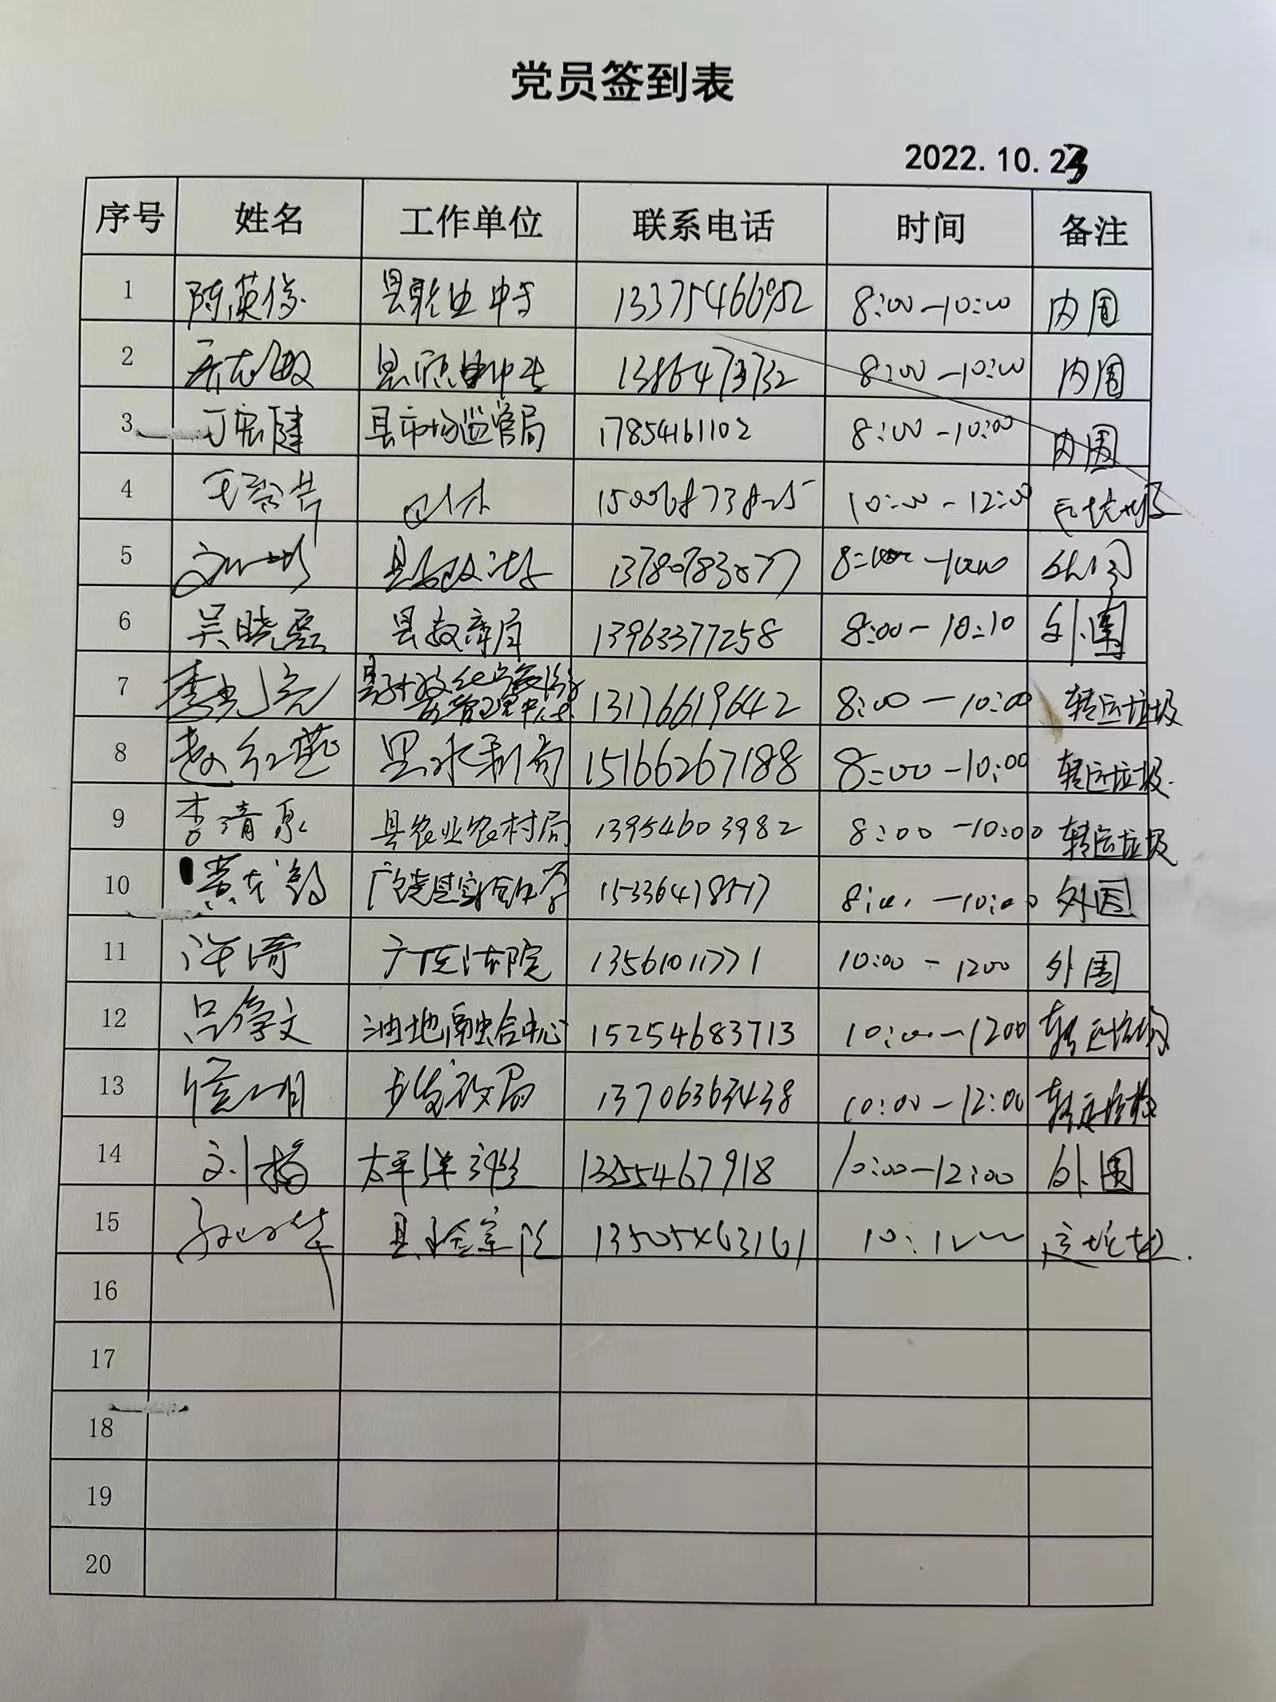 党员签到表
2022.10.23
序号 姓名 工作单位 联系电话 时间 备注
1 陈英俊 县职业中专 13375466952 8:00-10:00 内围
2 县职业中专 13864773732 8:00-10:00 内围
3 丁宏健 县市场监管局 17854161102 8:00-10:00 内围
4 10:00-12:00
5 13780783077 外围
6 吴晓磊 县教育局 13963377258 8:00-10:10 外围
7 李光亮 13176619642 8:00-10:00 转运垃圾
8 赵红燕 县水利局 15166267188 8:00-10:00 转运垃圾.
9 李清泉 县农业农村局 13954603982 8:00-10:00 转运垃圾
10 广饶县实验中学 15336478517 8:00-10:00 外围
11 许琦 广饶法院 13561011771 10:00-1200 外围
12 吕学文 油地融合中心 15254683713 10:00-1200 转运垃圾
13 发改局 13706363438 10:00-12:00 转运垃圾
14 刘梅 太平洋 13255467918 10:00-12:00 外围
15 县检察院 13505463161
16
17
18
19
20